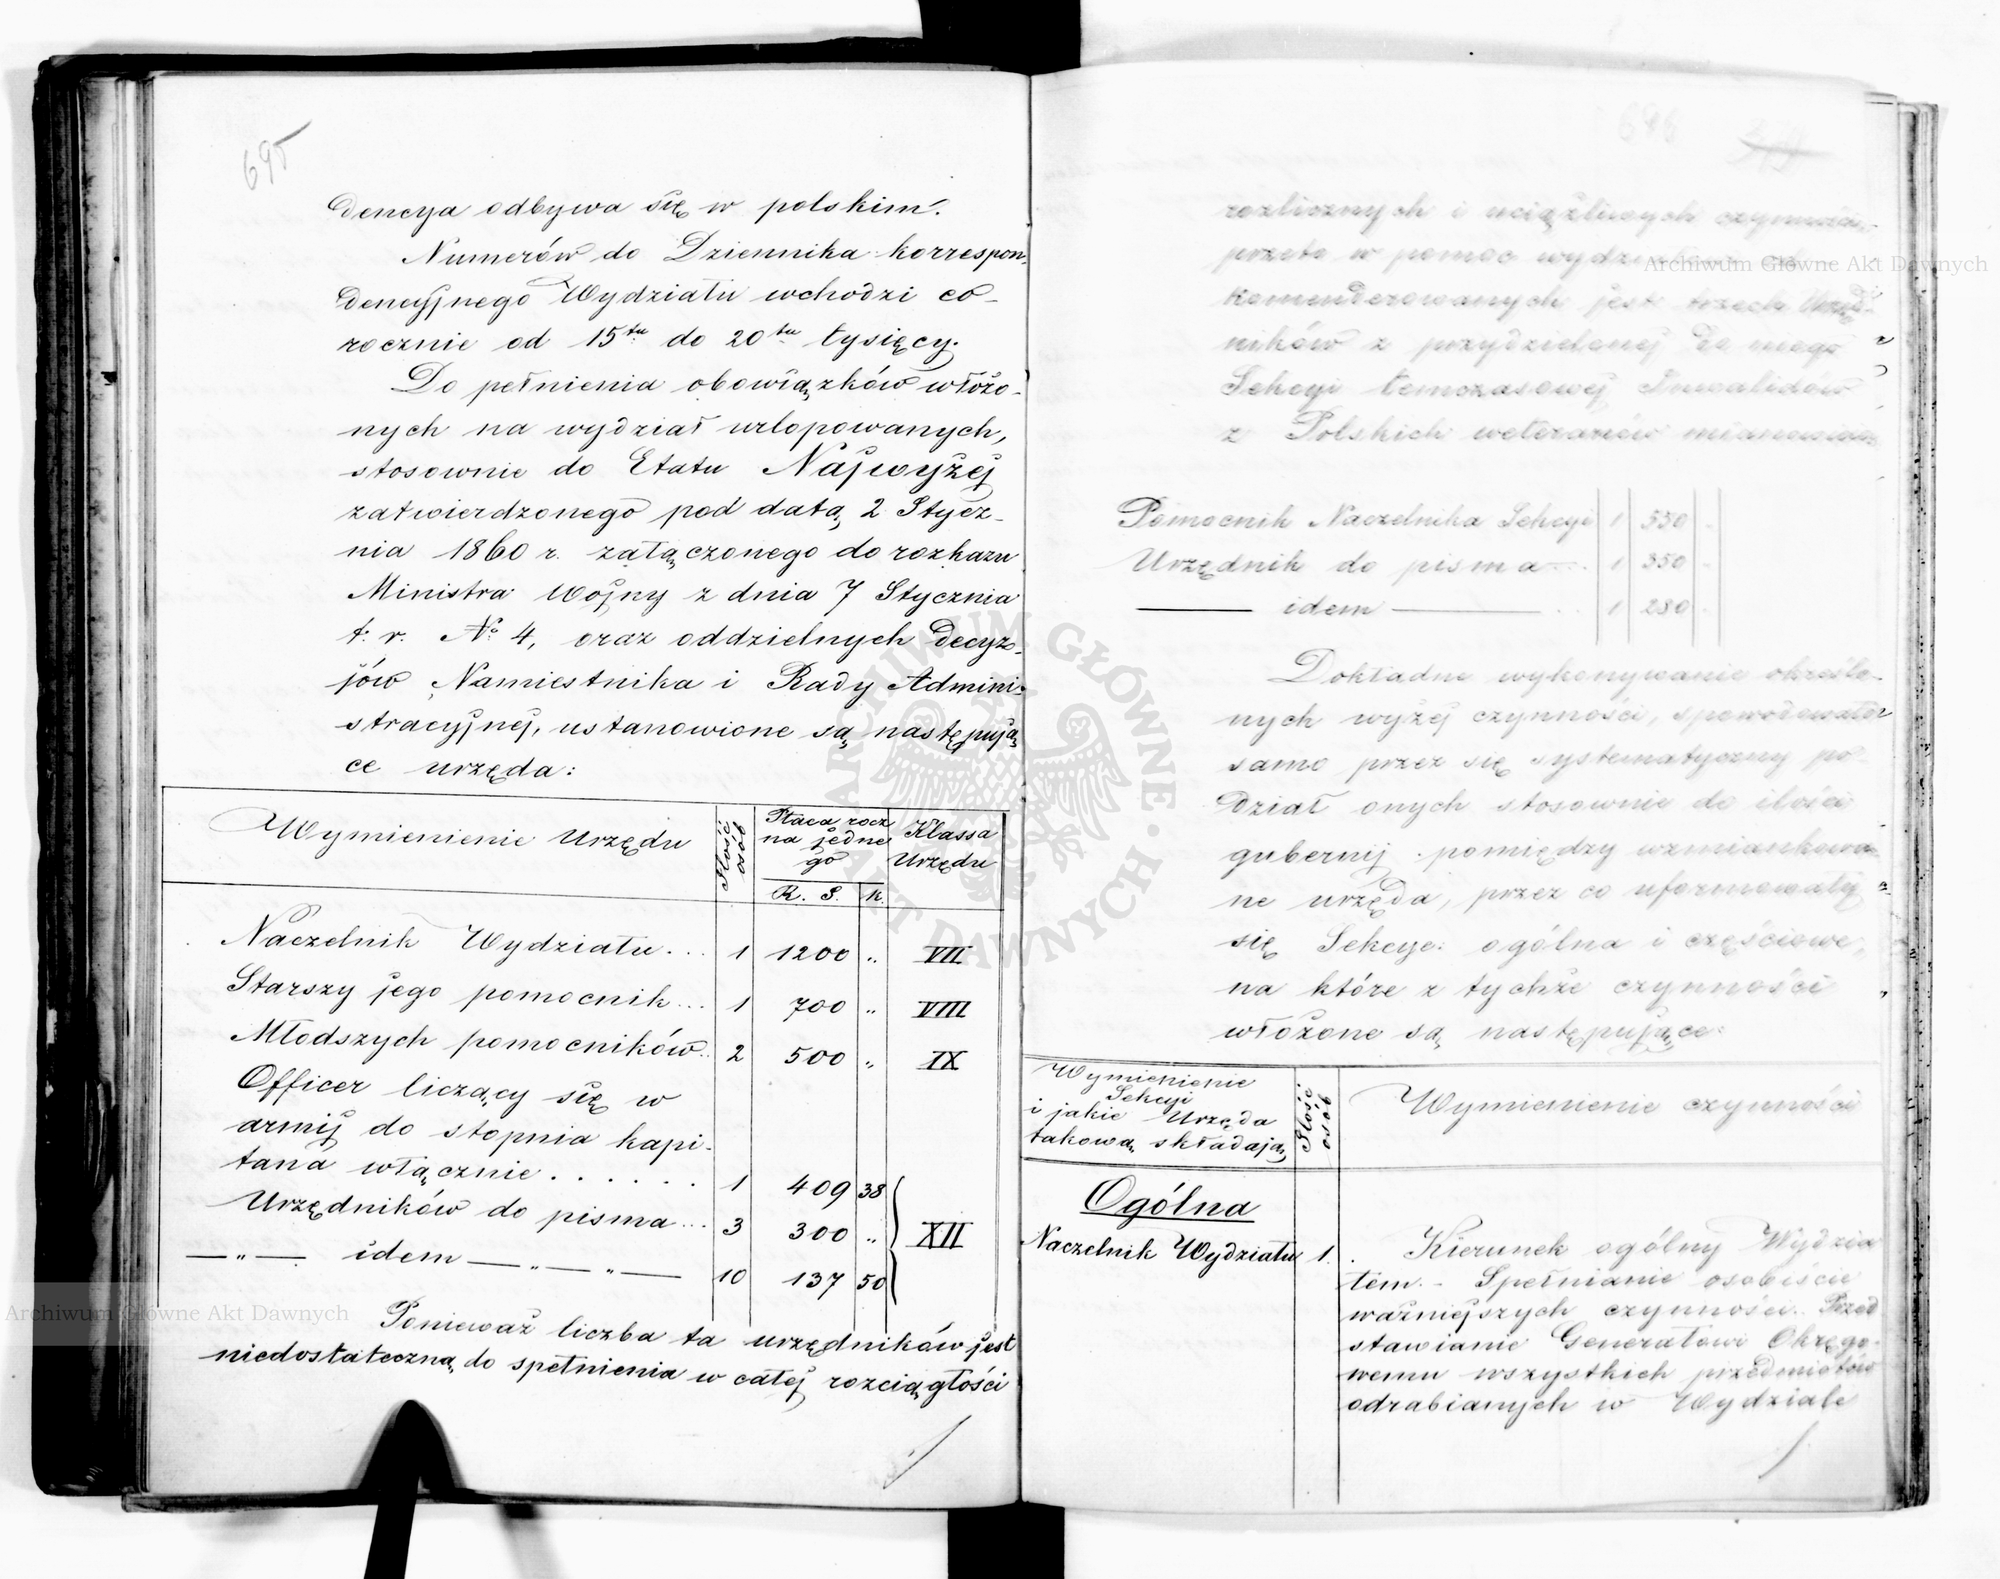 695
dencya odbywa się w polskim.
Numerów do Dziennika korrespon-
dencyjnego Wydziału wchodzi co-
rocznie od 15tu do 20tu tysięcy.
Do pełnienia obowiązków włożo-
nych na wydział urlopowanych,
stosownie do Etatu Najwyżej
zatwierdzonego pod datą 2 Stycz-
nia 1860 r. załączonego do rozkazu
Ministra Wojny z dnia 7 Stycznia
t. r. No 4, oraz oddzielnych decyz-
jów Namiestnika i Rady Admini-
stracyjnej, ustanowione są następują
ce urzęda:
Wymienienie Urzędu | Ilość osób | Płaca rocz na jedne go | Klassa Urzędu
R. S. | k.
Naczelnik Wydziału... | 1 | 1200 | " | VII
Starszy jego pomocnik... | 1 | 700 | " | VIII
Młodszych pomocników.. | 2 | 500 | " | IX
Officer liczący się w
armij do stopnia kapi-
tana włącznie...... | 1 | 409 | 38
Urzędników do pisma... | 3 | 300 | " | XII
— " — idem — " — " — | 10 | 137 | 50
Ponieważ liczba ta urzędników jest
niedostateczną do spełnienia w całej rozciągłości
696
rozlicznych i uciążliwych
przeto w pomoc
komenderowanych jest trzech Urzęd-
ników z przydzielonej do niego
Sekcyi temczasowej Inwalidów
z Polskich weteranów mianowicie
Pomocnik Naczelnika Sekcyi | 1 | 550
Urzędnik do pisma... | 1 | 350
— idem — | 1 | 280
Dokładne wykonywanie okreslo-
nych wyżej czynności, spowodowało
samo przez się systematyczny po
dział onych stosownie do ilości
gubernij pomiędzy wzmiankowa-
ne urzęda, przez co uformowały
się Sekcye: ogólna i częściowe,
na które z tychże czynności
włożone są następujące:
Wymienienie Sekcyi i jakie Urzęda takową składają | Ilość osób | Wymienienie czynności
Ogólna
Naczelnik Wydziału | 1. | Kierunek ogólny Wydzia
łem. - Spełnianie osobiście
ważniejszych czynności. Przed
stawianie Generałowi Okręgo-
wemu wszystkich przedmiotów
odrabianych w Wydziale
Archiwum Główne Akt Dawnych
ARCHIWUM GŁÓWNE AKT DAWNYCH
Archiwum Główne Akt Dawnych